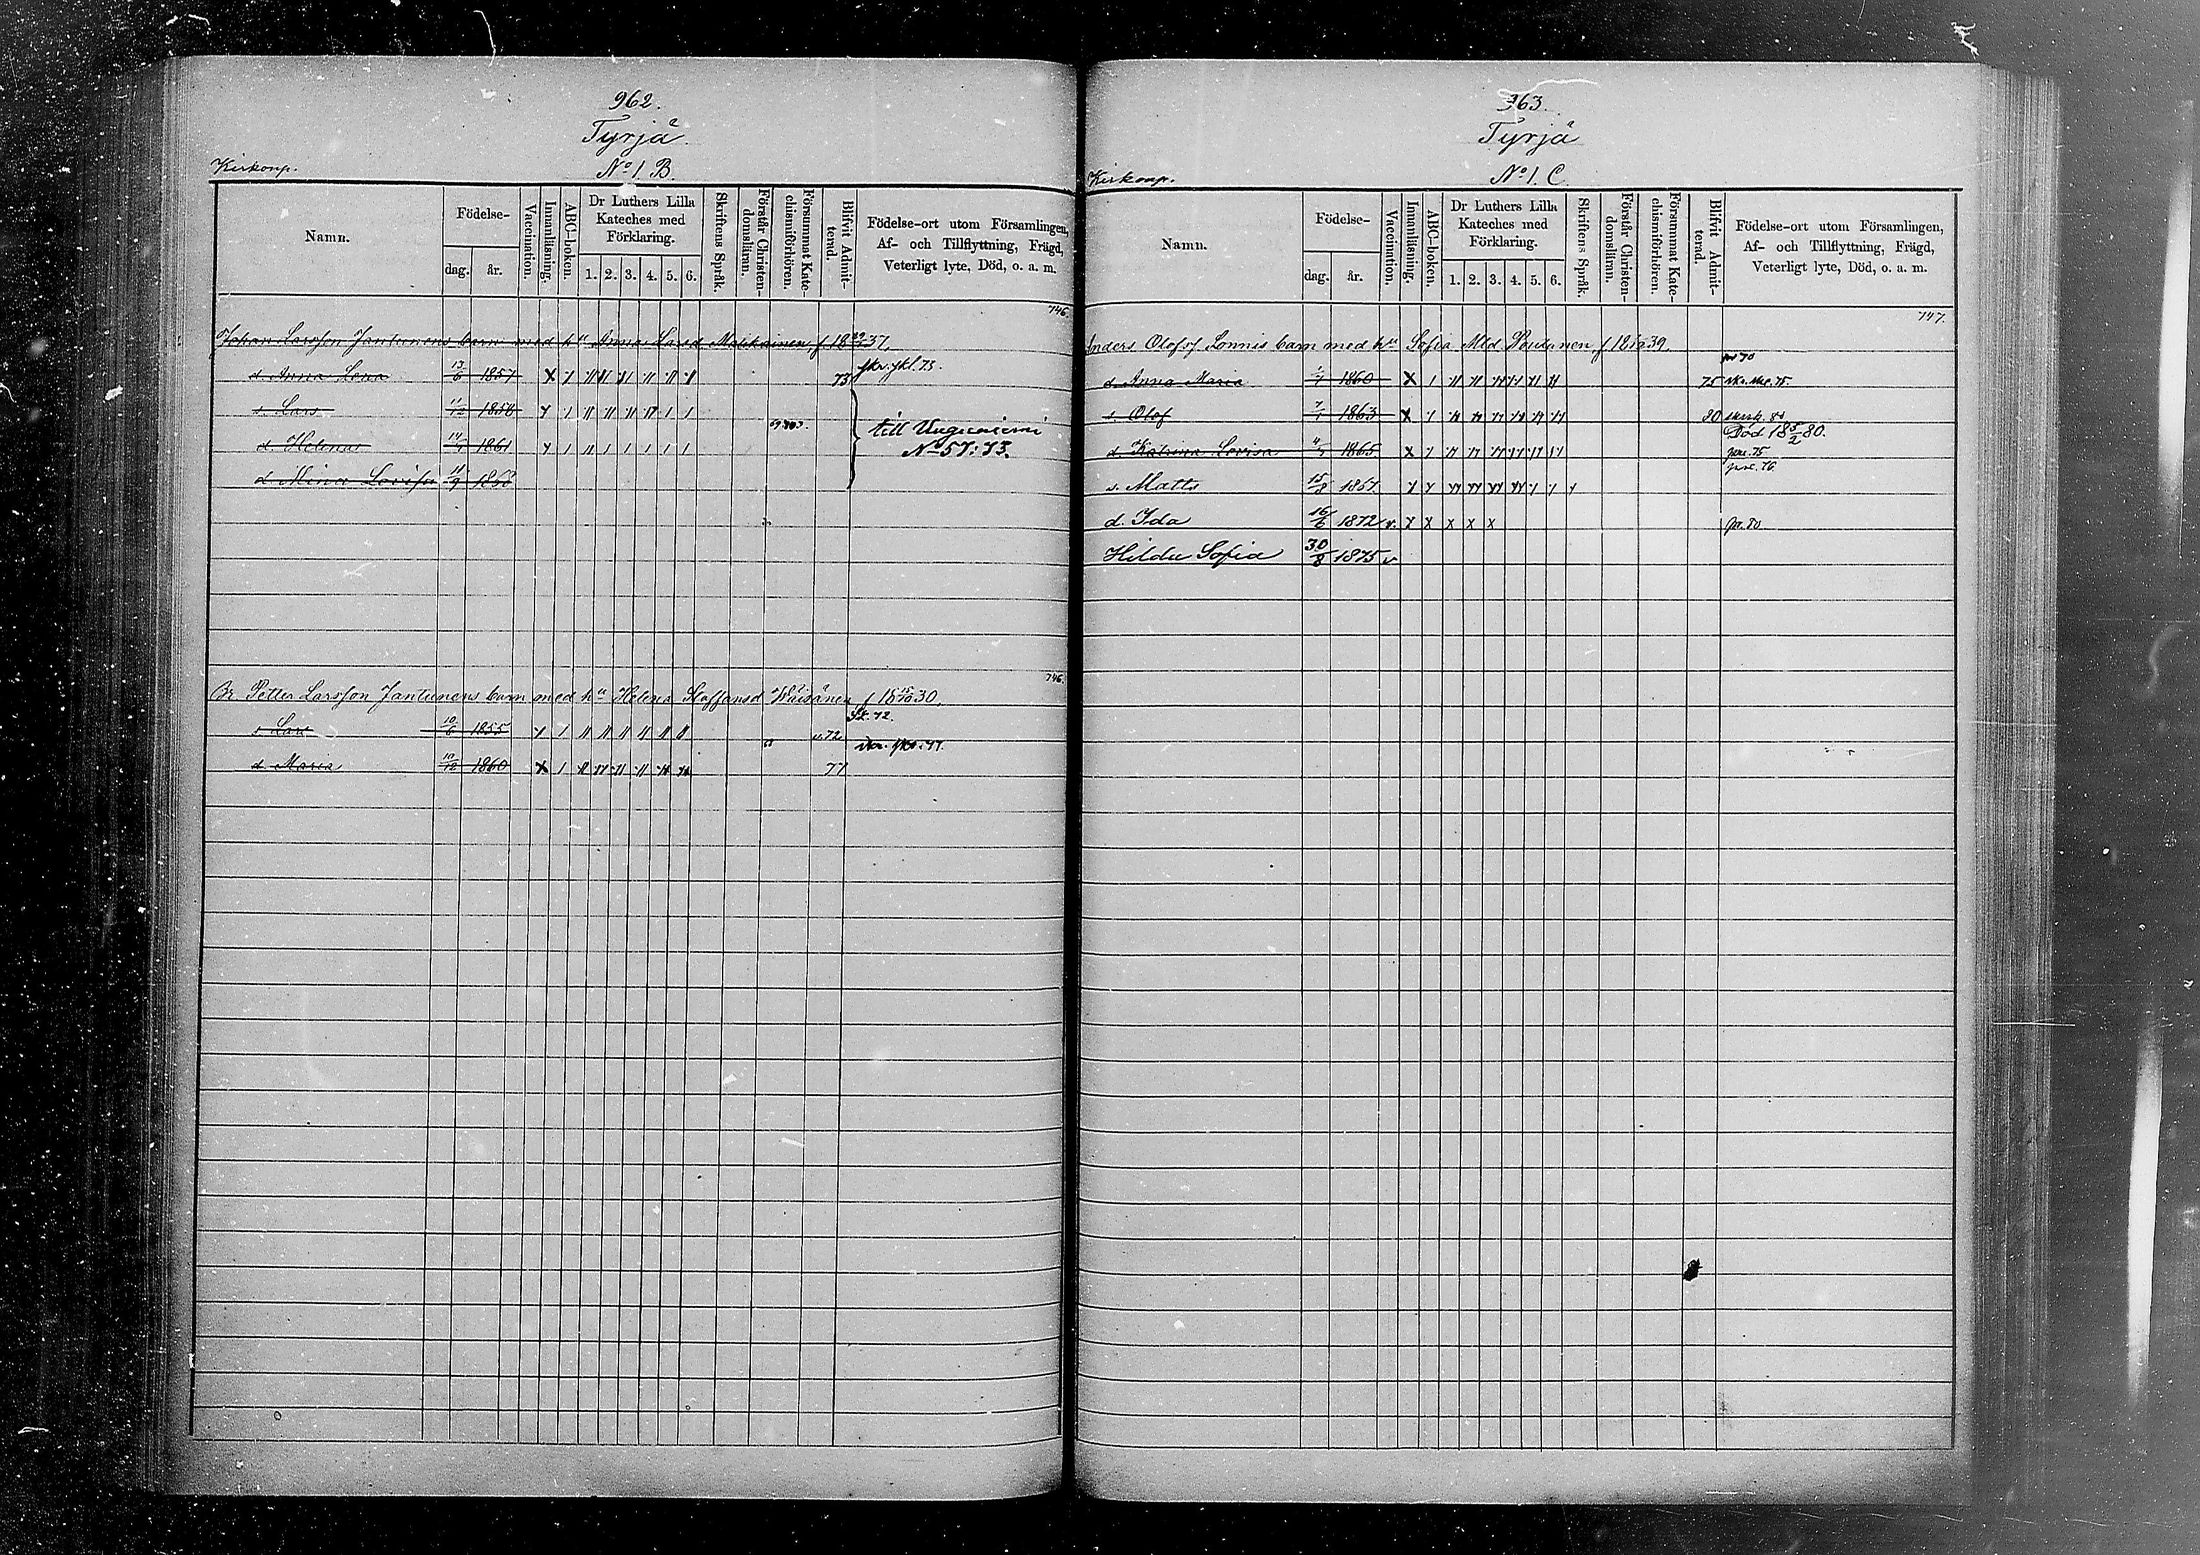 962.
Tyrjä
Kirkonp.
No 1 B.
Namn.
Födelse-
dag.
år.
Vaccination.
Innanläsning.
ABC-boken.
Dr Luthers Lilla
Kateches med
Förklaring.
1. 2. 3. 4. 5. 6.
Skriftens Språk.
Förstår Christen-
domsläran.
Försummat Kate-
chismiförhören.
Blifvit Admit-
terad.
Födelse-ort utom Församlingen,
Af- och Tillflyttning, Frägd,
Veterligt lyte, Död, o. a. m.
746.
Johan Larsson Jantunens barn med hu Anna Larsd Maukainen, f 18 37,
d. Anna Lena 13/6 1857 X 73
s. Lars 11/12 1858
d. Helena 14/7 1861
till
No 57: 73.
d. Mina Lovisa 11/9 1868
746.
Br. Petter Larsson Jantunens barn med hu Helena Staffansd Väisänen f 18 15/10 30.
s Lars 10/6 1855 v.72
d Maria 10/12 1860 X 77
363.
Tyrjä
Kirkonp.
No 1. C.
Namn.
Födelse-
dag.
år.
Vaccination.
Innanläsning.
ABC-boken.
Dr Luthers Lilla
Kateches med
Förklaring.
1. 2. 3. 4. 5. 6.
Skriftens Språk.
Förstår Christen-
domsläran.
Försummat Kate-
chismiförhören.
Blifvit Admit-
terad.
Födelse-ort utom Församlingen,
Af- och Tillflyttning, Frägd,
Veterligt lyte, Död, o. a. m.
747.
Anders Olofsf Lonnis barn med hu Sofia Mtd Poutanen f 18 39,
d. Anna Maria 1860 X 75
s. Olof 7/1 1863 X 80
Död 18 5/2 80.
d. Katrina Lovisa 1865 X
s. Matts 15/8 1867
d. Ida 16/6 1872 v. x x x pr. 80.
Hilda Sofia 30/8 1875 v